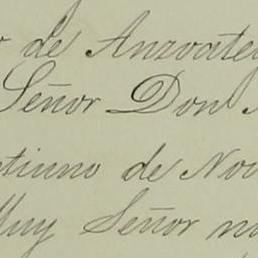 de Anzoateg
Señor Don
tiuno de Nov
Muy Señor m